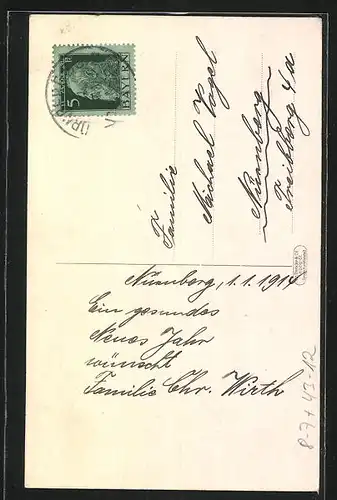 5
BAYERN
Familie
Michael Vogel
Nürnberg
Treibberg 4/a
Nürnberg, 1.1.1914
Ein gesundes
Neues Jahr
wünscht
Familie Chr. Wirth
8-7+43-12